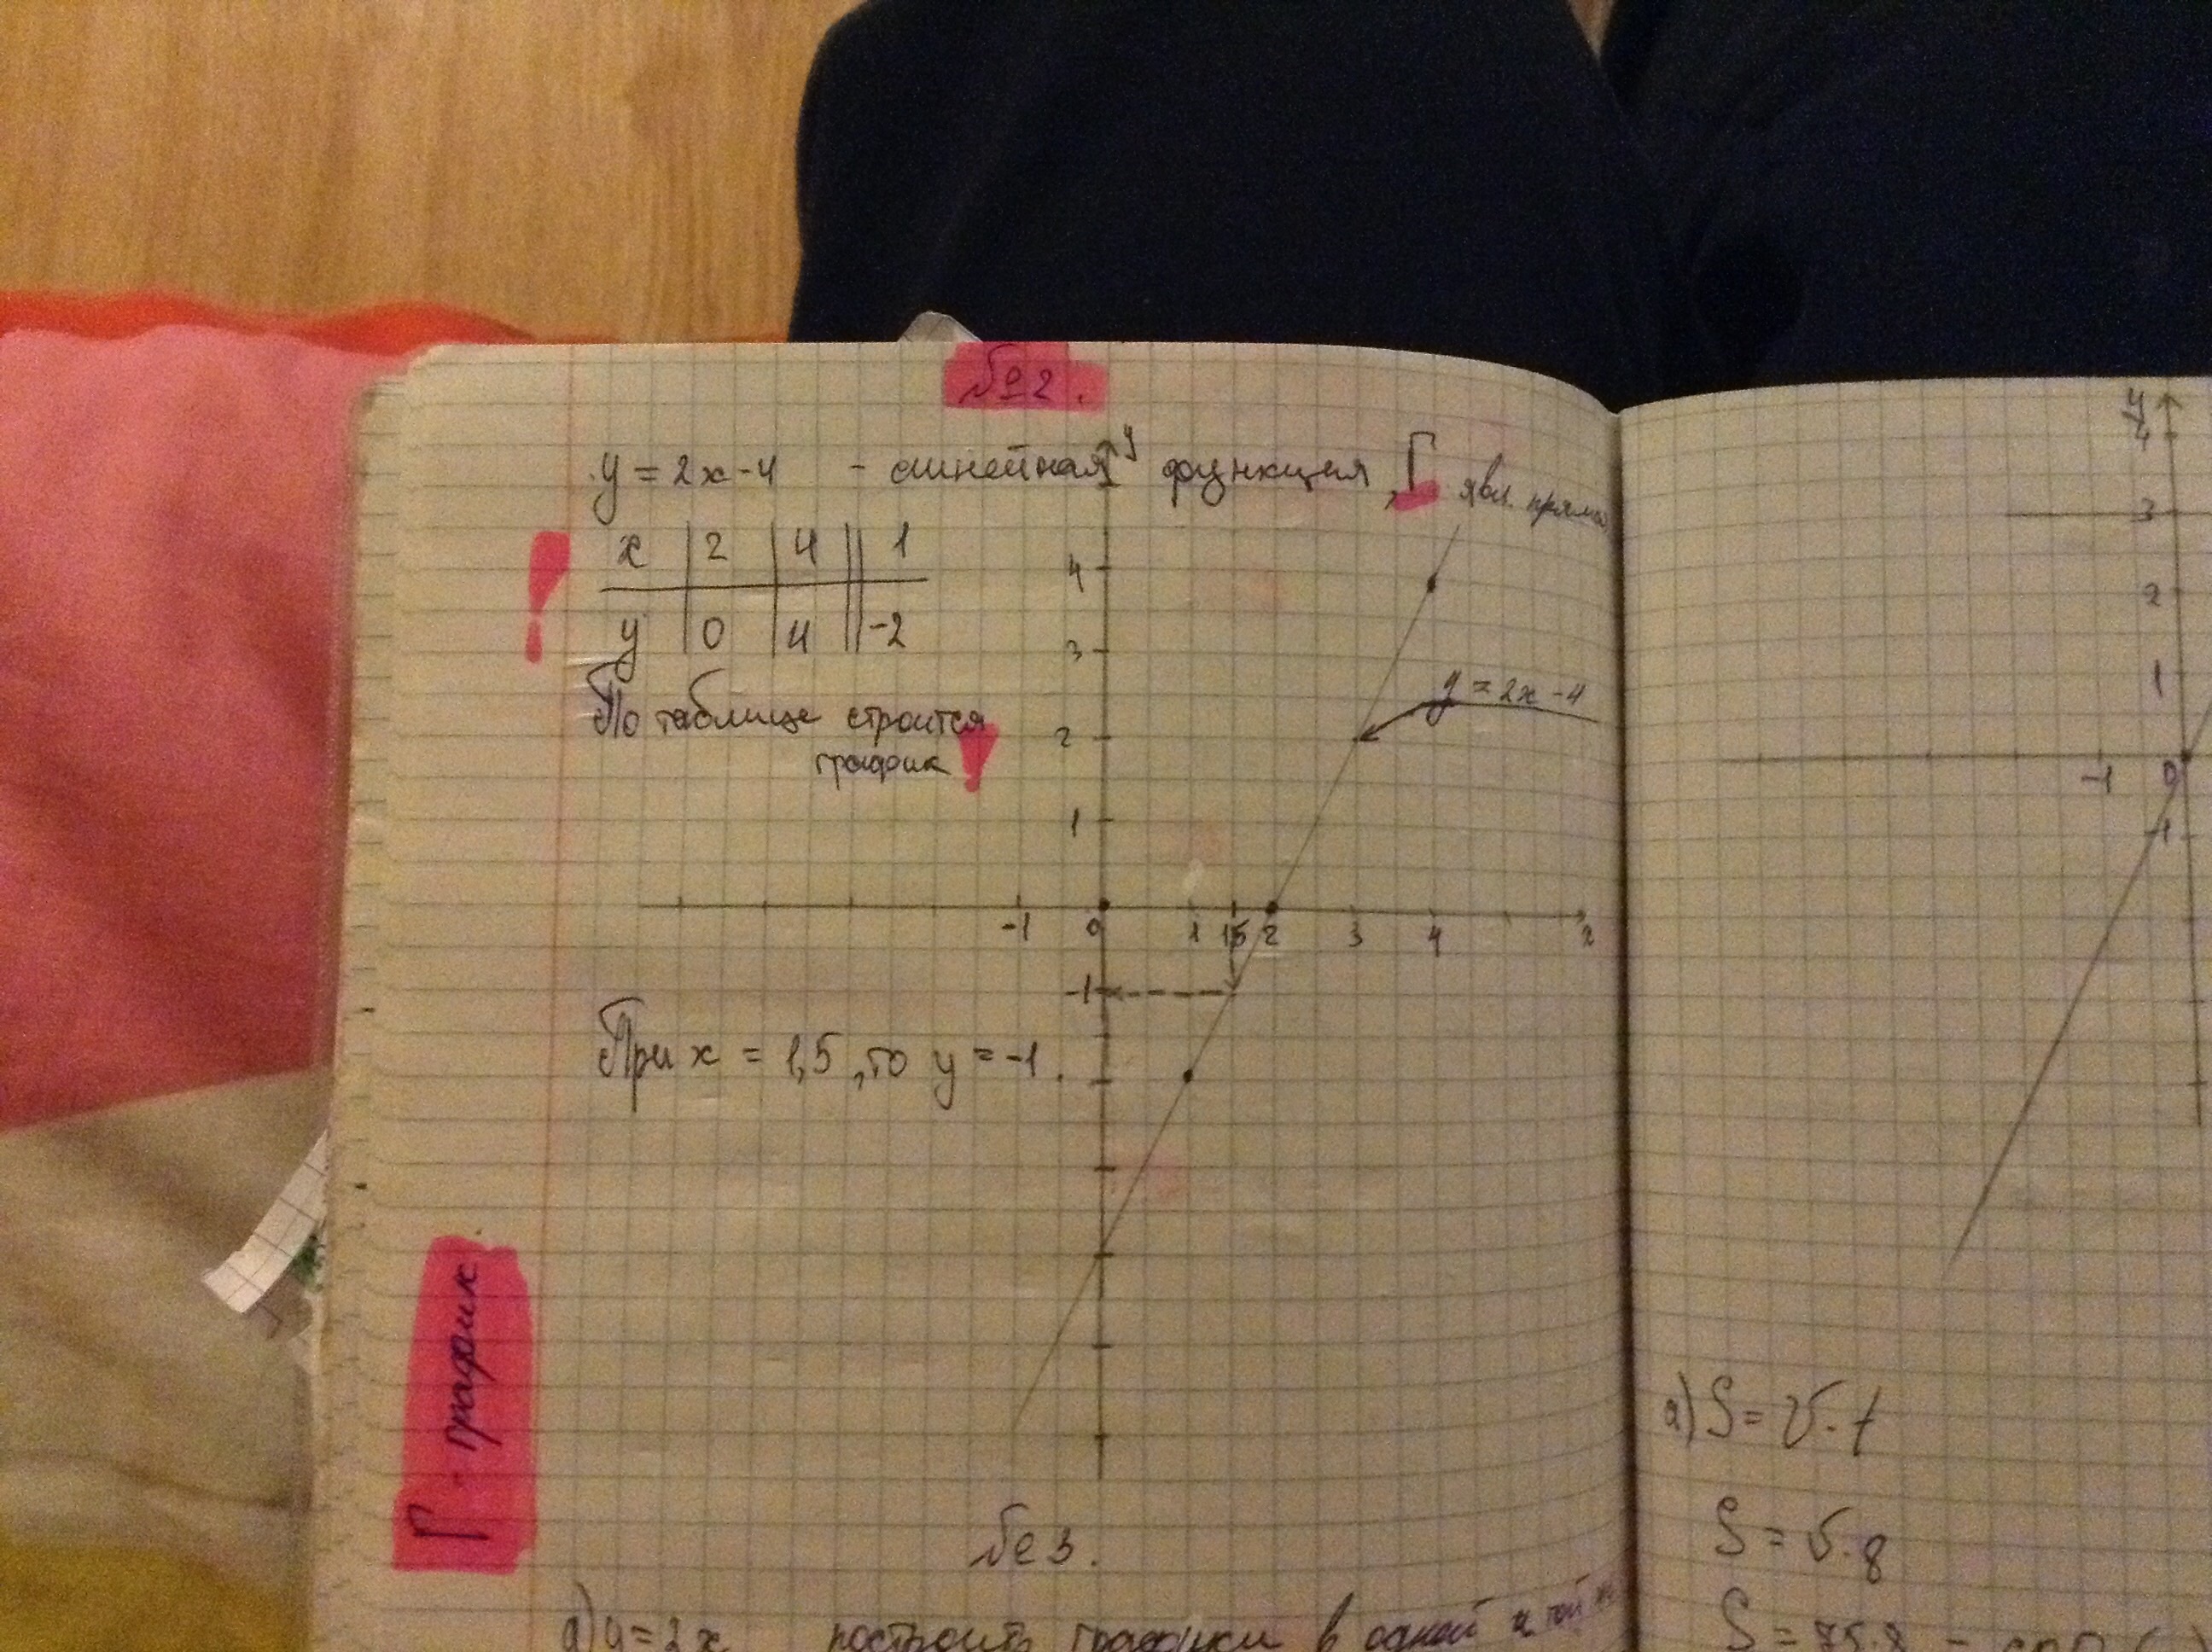 №2.
y = 2x-4 - линейная функция, Г явл. прямая
x | 2 | 4 || 1
y | 0 | 4 || -2
По таблице строится
график
y
4
3
2
1
y = 2x-4
-1 0 1 1,5 2 3 4 x
-1
При x = 1,5, то y = -1.
Г - график
№3.
а) y = 2x построить графики в одной и той
y
4
3
2
1
-1 0
-1
а) S = v·t
S = v·8
S = 75·8